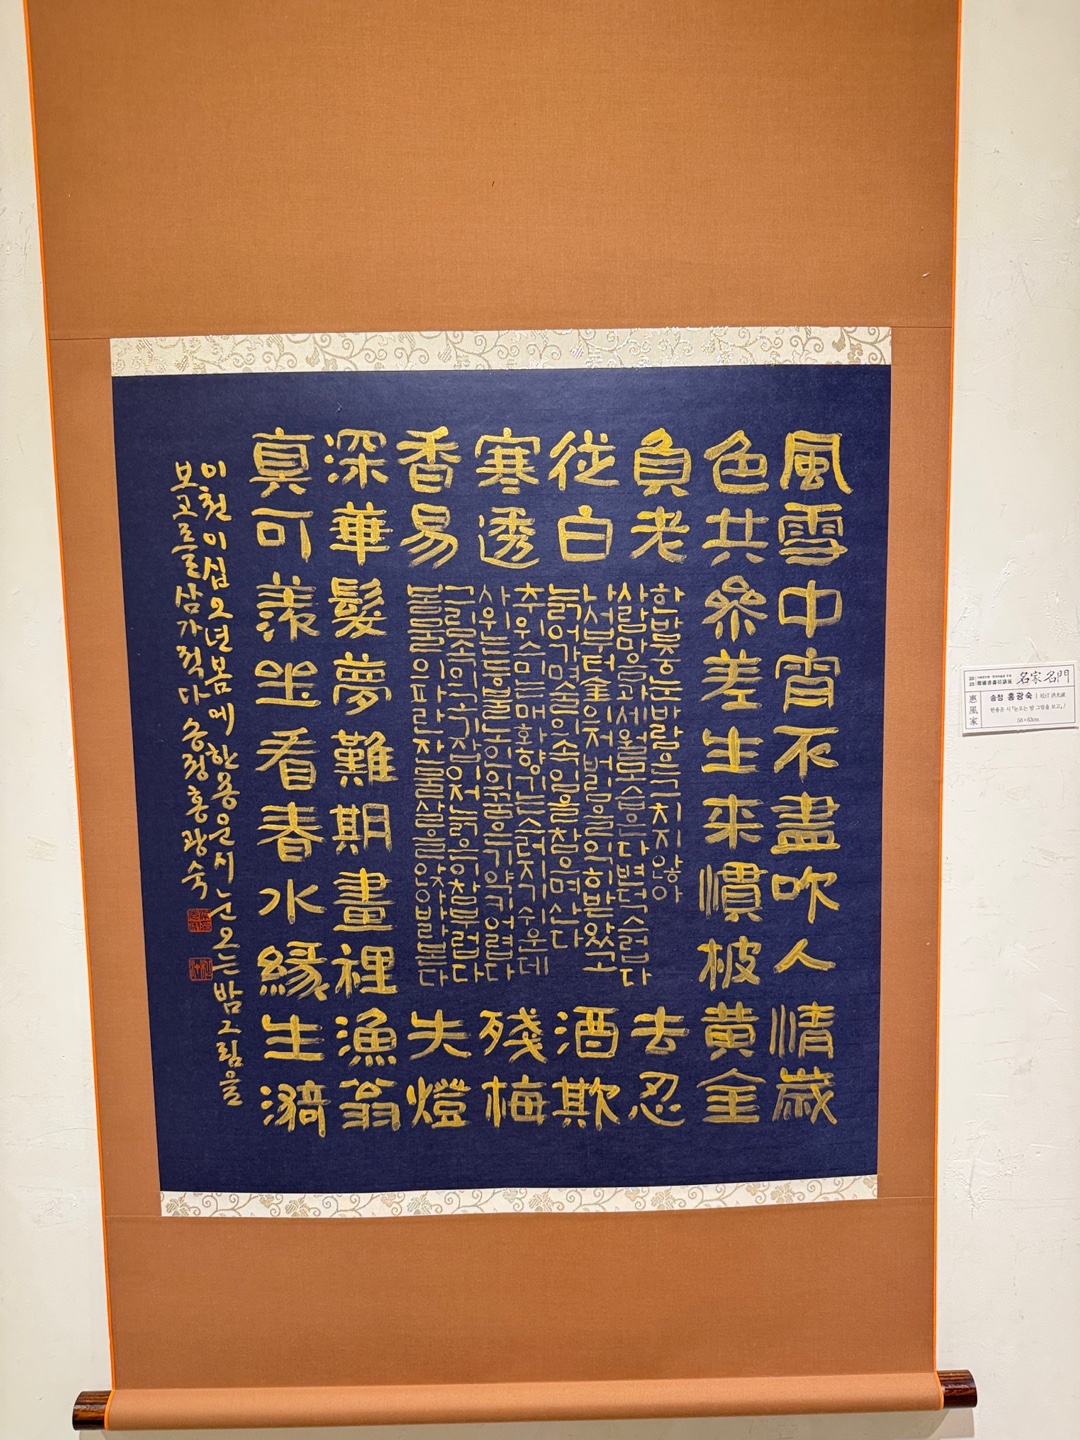 風雪中宵不盡吹人情歲
色共參差生來慣被黃金
負老
去忍
從白
酒欺
寒透
殘梅
香易
失燈
深華髮夢難期畫裡漁翁
真可羨坐看春水綠生漪
한밤중눈바람은그치지않아
사람마음과세월모습은다변덕스럽다
나서부터 저버림을익히받았고
늙어가며술의속임을참으며산다
추위스민매화향기는스러지기쉬운데
사위는등불노인의꿈은기약키어렵다
그림속의고기잡이저늙은이참부럽다
봄물의파란잔물살을앉아
이천이십오년봄에한용운시눈오는밤그림을
보고를삼가적다송정홍광숙
名家名門
惠風家
송정 홍광숙
한용운 시「눈오는 밤 그림을 보고」